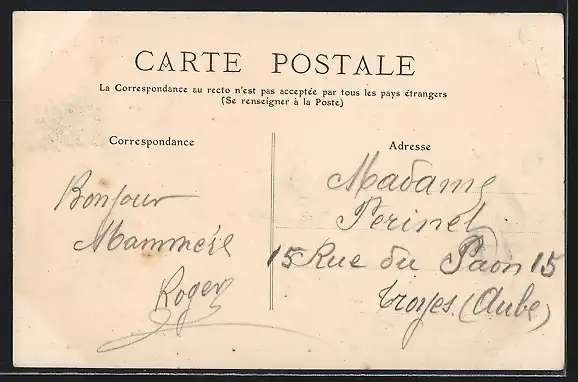 CARTE POSTALE
La Correspondance au recto n'est pas acceptée par tous les pays étrangers
(Se renseigner à la Poste)
Correspondance
Bonjour
Mammère
Roger
Adresse
Madame
Perinel
15 Rue du Paon 15
Troyes (Aube)